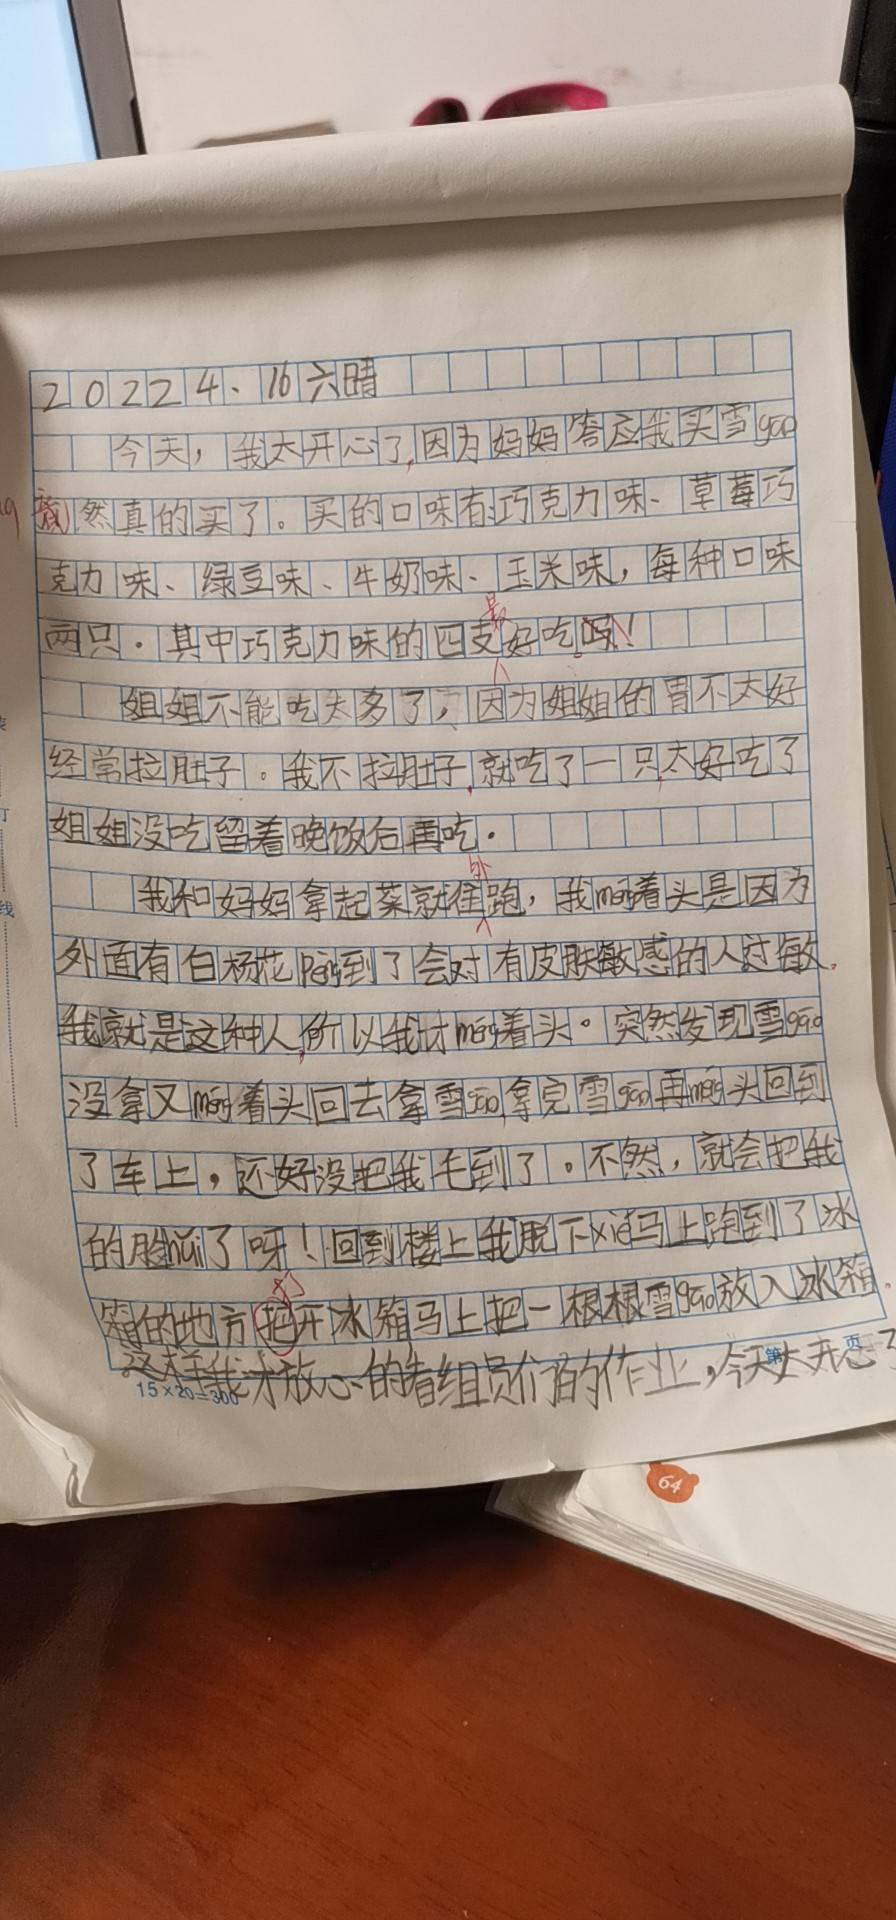 2022 4.16六晴
今天，我太开心了,因为妈妈答应我买雪gao
然真的买了。买的口味有:巧克力味、草莓巧
克力味、绿豆味、牛奶味、玉米味，每种口味
最
两只.其中巧克力味的四支好吃吗!
姐姐不能吃太多了，因为姐姐的胃不太好
经常拉肚子。我不拉肚子,就吃了一只,太好吃了
姐姐没吃留着晚饭后再吃.
外
我和妈妈拿起菜就往跑，我méng着头是因为
外面有白杨花pèng到了会对有皮肤敏感的人过敏.
我就是这种人,所以我才méng着头。突然发现雪gāo
没拿又méng着头回去拿雪gāo,拿完雪gāo再méng头回到
了车上，还好没把我毛到了。不然，就会把我
的脸huǐ了呀！回到楼上我脱下xié马上跑到了冰
打
箱的地方把开冰箱马上把一根根雪gāo放入冰箱.
这样我才放心的看组员们的作业，今天太开心了
15×20=300
第 页
订
线
64